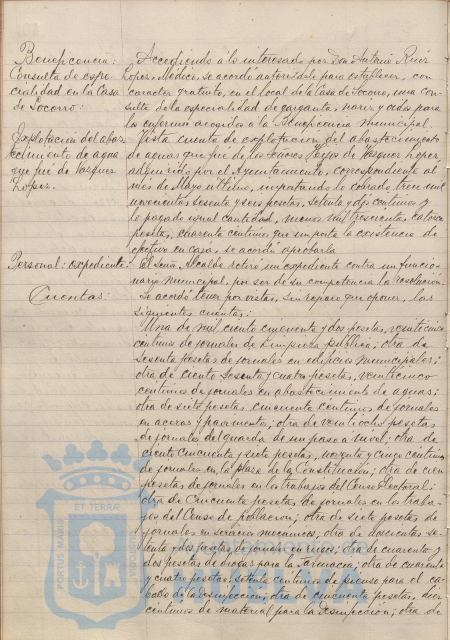 Beneficencia:
Consulta de espe-
cialidad en la Casa
de Socorro:
Accediendo á lo interesado por Don Antonio Ruiz
López, Médico, se acordó autorizarle para establecer, con
carácter gratuito, en el local de la Casa de Socorro, una con-
sulta de la especialidad de garganta, nariz y oidos para
los enfermos acogidos a la Beneficencia municipal.
Explotación del abas-
tecimiento de aguas
que fué de Vazquez
López.
Vista cuenta de explotación del abastecimiento
de aguas que fué de los Señores Hijos de Vazquez López,
adquirido por el Ayuntamiento, correspondiente al
mes de Mayo último, importando lo cobrado trece mil
novecientas sesenta y seis pesetas, setenta y dos céntimos y
lo pagado igual cantidad, menos mil trescientas catorce
pesetas, cuarenta céntimos que importa la existencia de
efectivo en caja, se acordó aprobarla.
Personal: expediente:
El Señor Alcalde retiró un expediente contra un funcio-
nario municipal, por ser de su competencia la resolución.
Cuentas:
Se acordó tener por vistas, sin reparo que oponer, las
siguientes cuentas:
Una de mil ciento cincuenta y dos pesetas, veinticinco
céntimos de jornales de Limpieza pública; otra de
sesenta pesetas de jornales en edificios municipales;
otra de ciento sesenta y cuatro pesetas, veinticinco
céntimos de jornales en abastecimiento de aguas;
otra de siete pesetas, cincuenta céntimos de jornales
en aceras y pavimento; otra de veintiocho pesetas
de jornales del guarda de un paso a nivel; otra de
ciento cincuenta y siete pesetas, noventa y cinco céntimos
de jornales en la plaza de la Constitución; otra de cien
pesetas de jornales en los trabajos del Censo electoral:
otra de cincuenta pesetas, de jornales en los traba-
jos del Censo de población; otra de siete pesetas de
jornales en servicio mecánico; otra de doscientas se-
tenta y dos pesetas, de jornales en riegos; otra de cuarenta y
dos pesetas de drogas para la farmacia; otra de cuarenta
y cuatro pesetas, setenta céntimos de pienso para el ca-
ballo de la desinfección; otra de cincuenta pesetas, diez
céntimos de material para la desinfección; otra de
PORTUS MARIS ET TERRÆ CUSTODIA